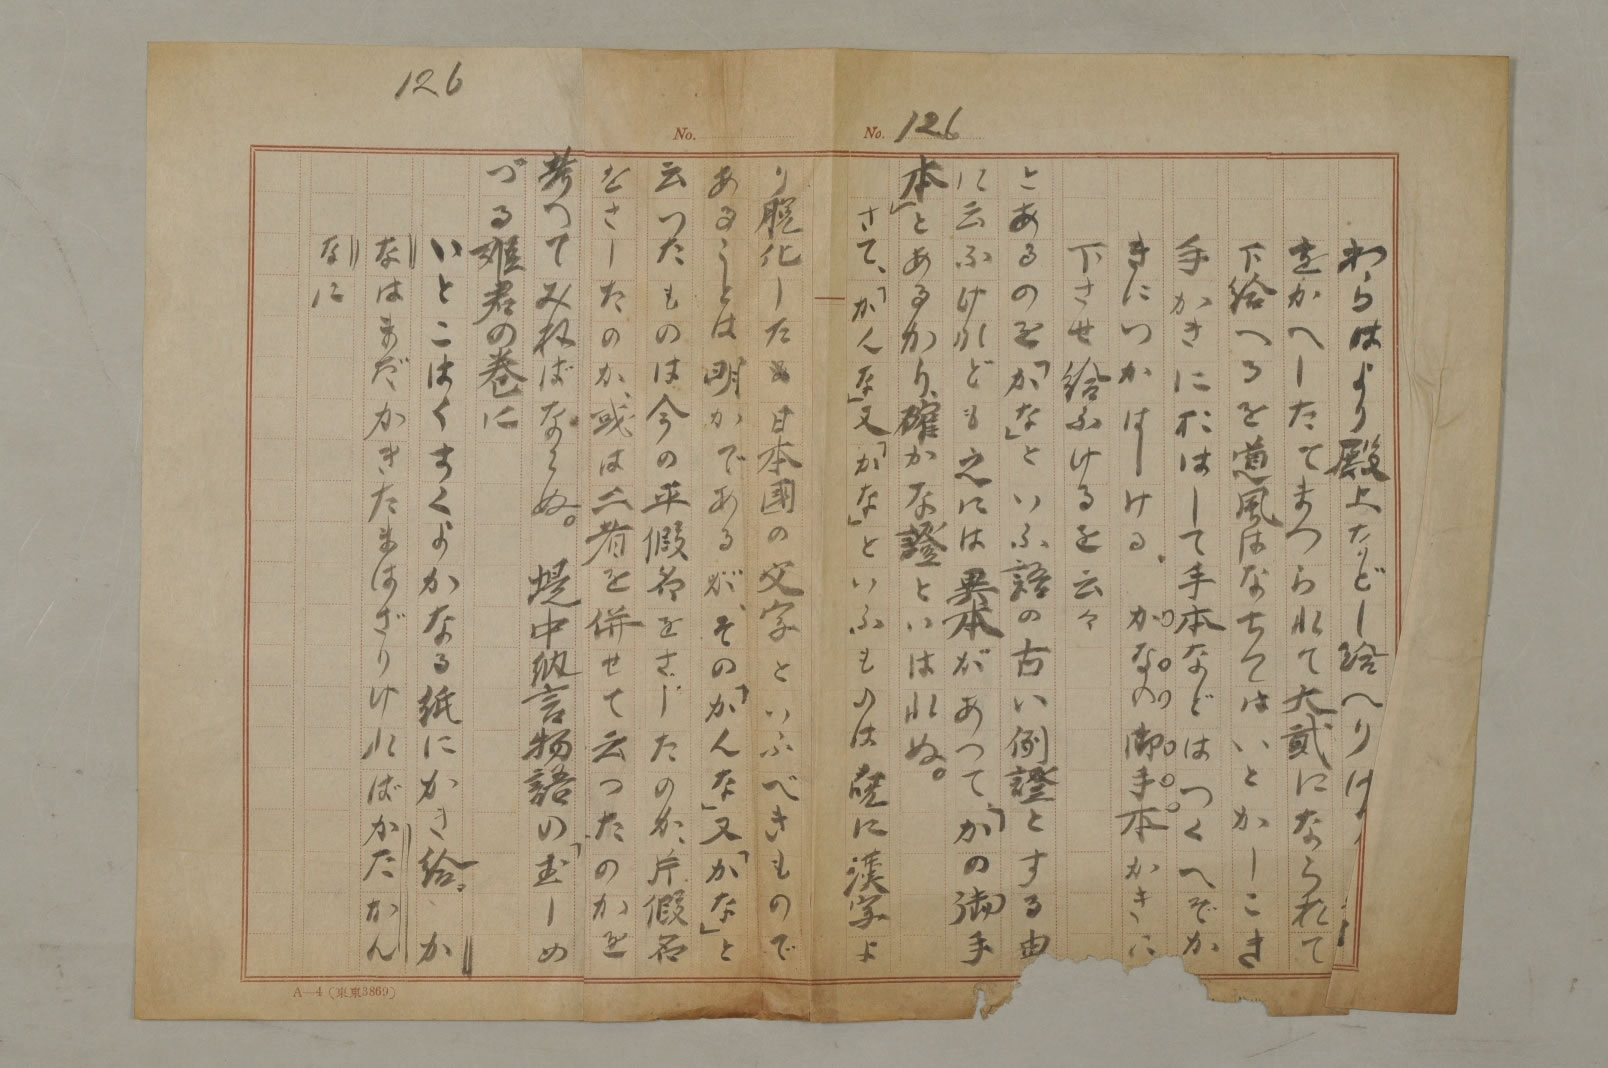 126
No.
No. 126
わらはより殿上などし給へりけ
をかへしたてまつられて大貮になられて
下給へるを道風はなちてはいとかしこき
手かきにおはして手本などはつくへぞか
きにつかはしける、かなの御手本かきに
下させ給ふけるを云々
とあるのを「かな」といふ語の古い例證とする由
に云ふけれども之には異本があつて、「かの御手
本」とあるかり、確かな證とはいはれぬ。
さて、「かんな」又「かな」といふものは蓋に漢字よ
り脱化した日本國の文字といふべきもので
あることは明かであるが、その「かんな」又「かな」と
云つたものは今の平假名をさしたのか、片假名
をさしたのか、或は二者を併せて云つたのかを
考へてみねばならぬ。堤中納言物語の「虫しめ
づる姫君の巻に
いとこはくすくよかなる紙にかき給、か
なはまだかきたまはざりければかたかん
なに
A—4（東京3869）